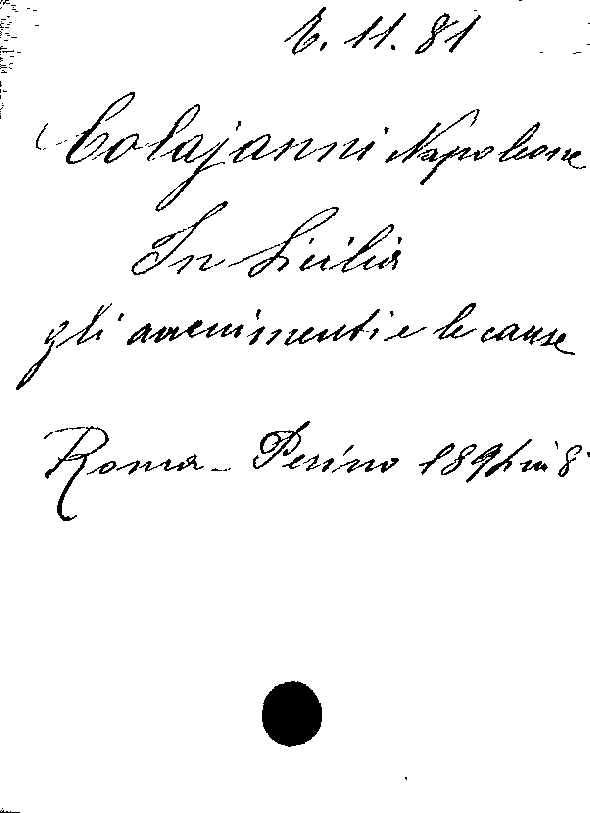 E. 11. 81
Colajanni Napoleone
In Sicilia
gli avvenimenti e le cause
Roma - Perino 1894 in 8°